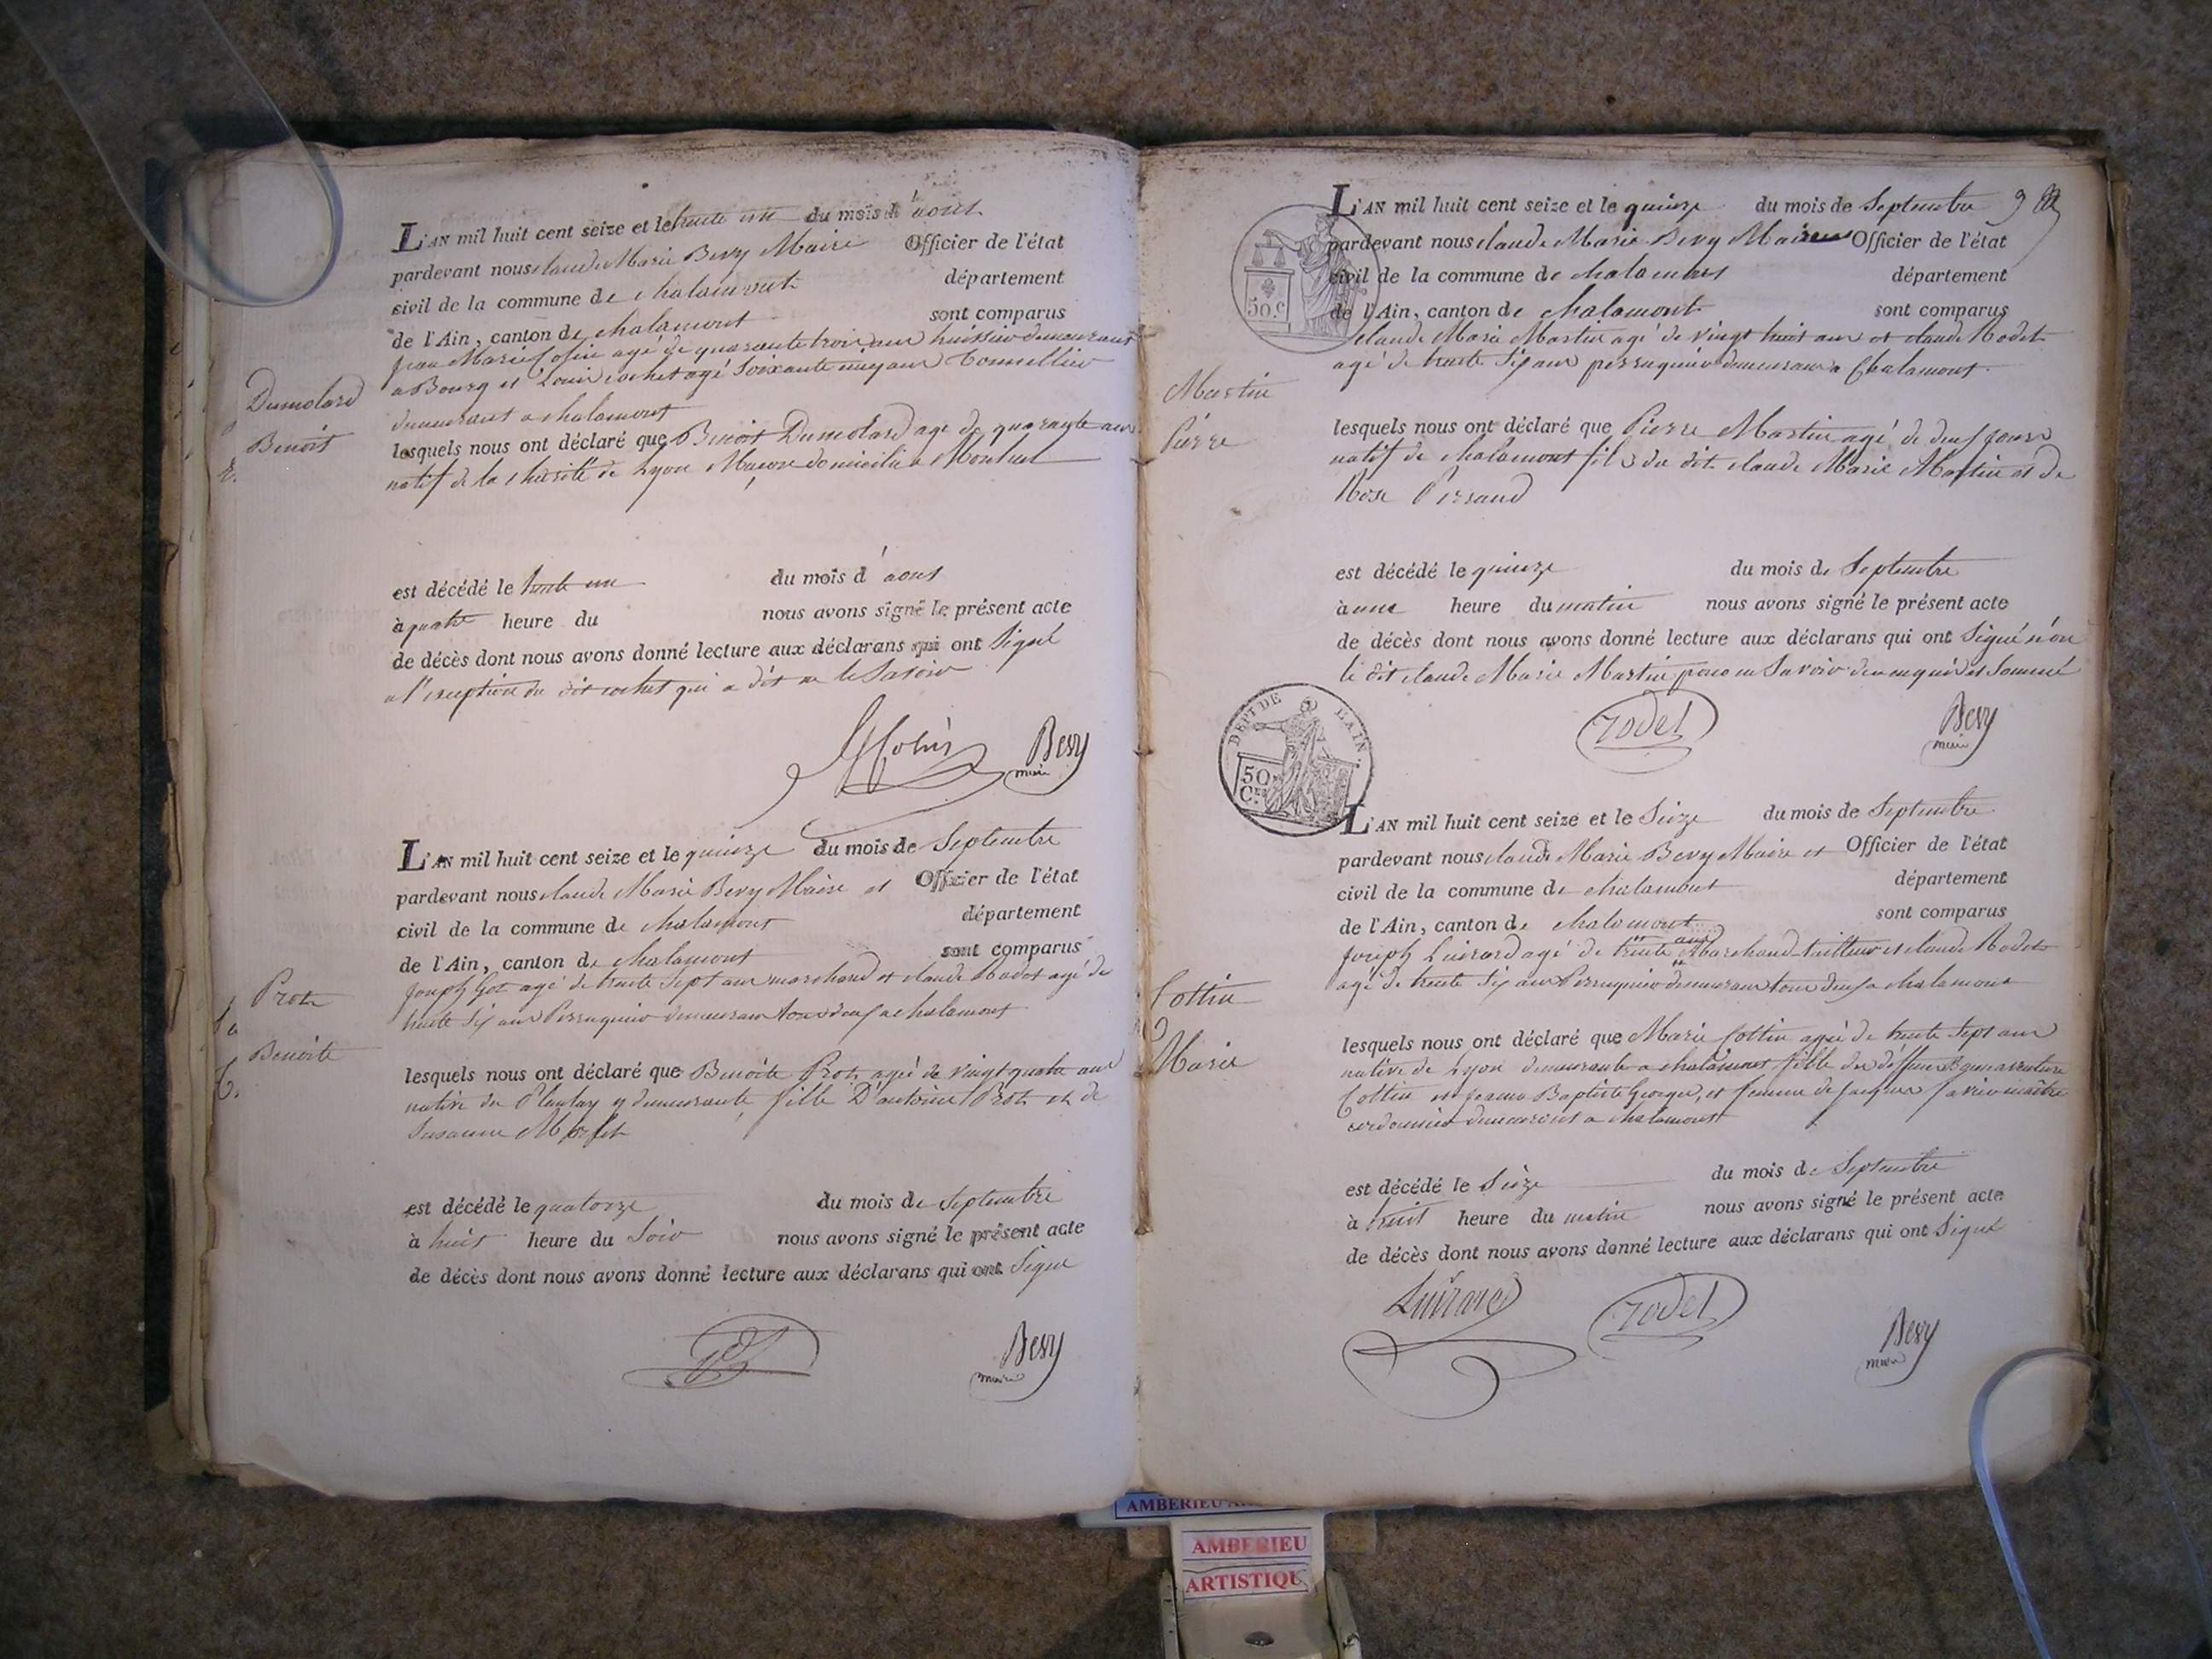 L'AN mil huit cent seize et le trente un du mois d'aout
pardevant nous claude Marie Bevy Maire Officier de l'état
civil de la commune de chalamont département
de l'Ain, canton de chalamont sont comparus
jean Marie Colin agé de quarante trois ans huissier demeurant
a Bourg et Louis cochet agé soixante cinq ans Tonnellier
demeurant a chalamont
Dumolard
Benoit
lesquels nous ont déclaré que Benoit Dumolard age de quarante ans
natif de la charité de Lyon Maçon domicilié a Montluel
est décédé le trente un du mois d'aout
à quatre heure du nous avons signé le présent acte
de décès dont nous avons donné lecture aux déclarans qui ont signé
a l'exception du dit cochet qui a dit ne le savoir
Colin Bevy
maire
L'AN mil huit cent seize et le quinze du mois de Septembre
pardevant nous claude Marie Bevy Maire et Officier de l'état
civil de la commune de chalamont département
de l'Ain, canton de chalamont sont comparus
joseph Got agé de trente sept ans marchand et claude Rodet agé de
trente six ans Perruquier demeurant tous deux a chalamont
Prost
Benoite
lesquels nous ont déclaré que Benoite Prost agée de vingt quatre ans
native du Plantay y demeurante fille D'antoine Prost et de
Susanne
est décédé le quatorze du mois de Septembre
à huit heure du Soir nous avons signé le présent acte
de décès dont nous avons donné lecture aux déclarans qui ont Signé
Bevy
maire
L'AN mil huit cent seize et le quinze du mois de Septembre 9
pardevant nous claude Marie Bevy Maire Officier de l'état
civil de la commune de chalamont département
50.c
de l'Ain, canton de chalamont sont comparus
claude Marie Martin agé de vingt huit ans et claude Rodet
agé de trente six ans perruquier demeurant a Chalamont.
Martin
Pierre
lesquels nous ont déclaré que Pierre Martin agé de deux jours
natif de chalamont fils du dit claude Marie Martin et de
Rose Perraud
est décédé le quinze du mois de Septembre
à une heure du matin nous avons signé le présent acte
de décès dont nous avons donné lecture aux déclarans qui ont Signé non
le dit claude Marie Martin pour ne Savoir de ce enquis et Sommé
rodet Bevy
maire
DEPT DE L'AIN.
50
C.es
L'AN mil huit cent seize et le Seize du mois de Septembre
pardevant nous claude Marie Bevy Maire et Officier de l'état
civil de la commune de chalamont département
de l'Ain, canton de chalamont sont comparus
joseph Luirard agé de trente ans Marchand tailleur et claude Rodet
agé de trente six ans Perruquier demeurant tous deux a chalamont
Cottin
Marie
lesquels nous ont déclaré que Marie Cottin agée de trente sept ans
native de Lyon demeurante a chalamont fille du deffunt Bonaventure
Cottin et jeanne Baptiste Georges, et femme de jacques maitre
cordonnier demeurant a chalamont
est décédé le Seize du mois de Septembre
à huit heure du matin nous avons signé le présent acte
de décès dont nous avons donné lecture aux déclarans qui ont Signé
Luirard rodet Bevy
maire
AMBERIEU
AMBERIEU
ARTISTIQU